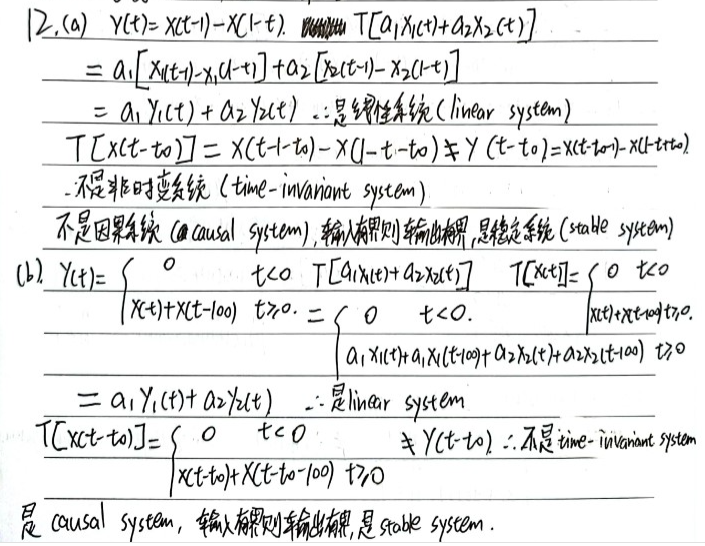 12.(a) Y(t)=X(t-1)-X(1-t). T[a₁X₁(t)+a₂X₂(t)]
= a₁[X₁(t-1)-X₁(1-t)]+a₂[X₂(t-1)-X₂(1-t)]
= a₁Y₁(t)+a₂Y₂(t) ∴是线性系统(linear system)
T[X(t-t₀)]=X(t-1-t₀)-X(1-t-t₀)≠Y(t-t₀)=X(t-t₀-1)-X(1-t+t₀).
∴不是非时变系统(time-invariant system)
不是因果系统(causal system),输入有界则输出有界,是稳定系统(stable system)
(b). Y(t)={ 0 t<0 T[a₁X₁(t)+a₂X₂(t)] T[X(t)]={ 0 t<0
X(t)+X(t-100) t≥0. ={ 0 t<0. X(t)+X(t-100) t≥0.
a₁X₁(t)+a₁X₁(t-100)+a₂X₂(t)+a₂X₂(t-100) t≥0
= a₁Y₁(t)+a₂Y₂(t) ∴是linear system
T[X(t-t₀)]={ 0 t<0 ≠Y(t-t₀) ∴不是time-invariant system
X(t-t₀)+X(t-t₀-100) t≥0
是 causal system, 输入有界则输出有界,是stable system.